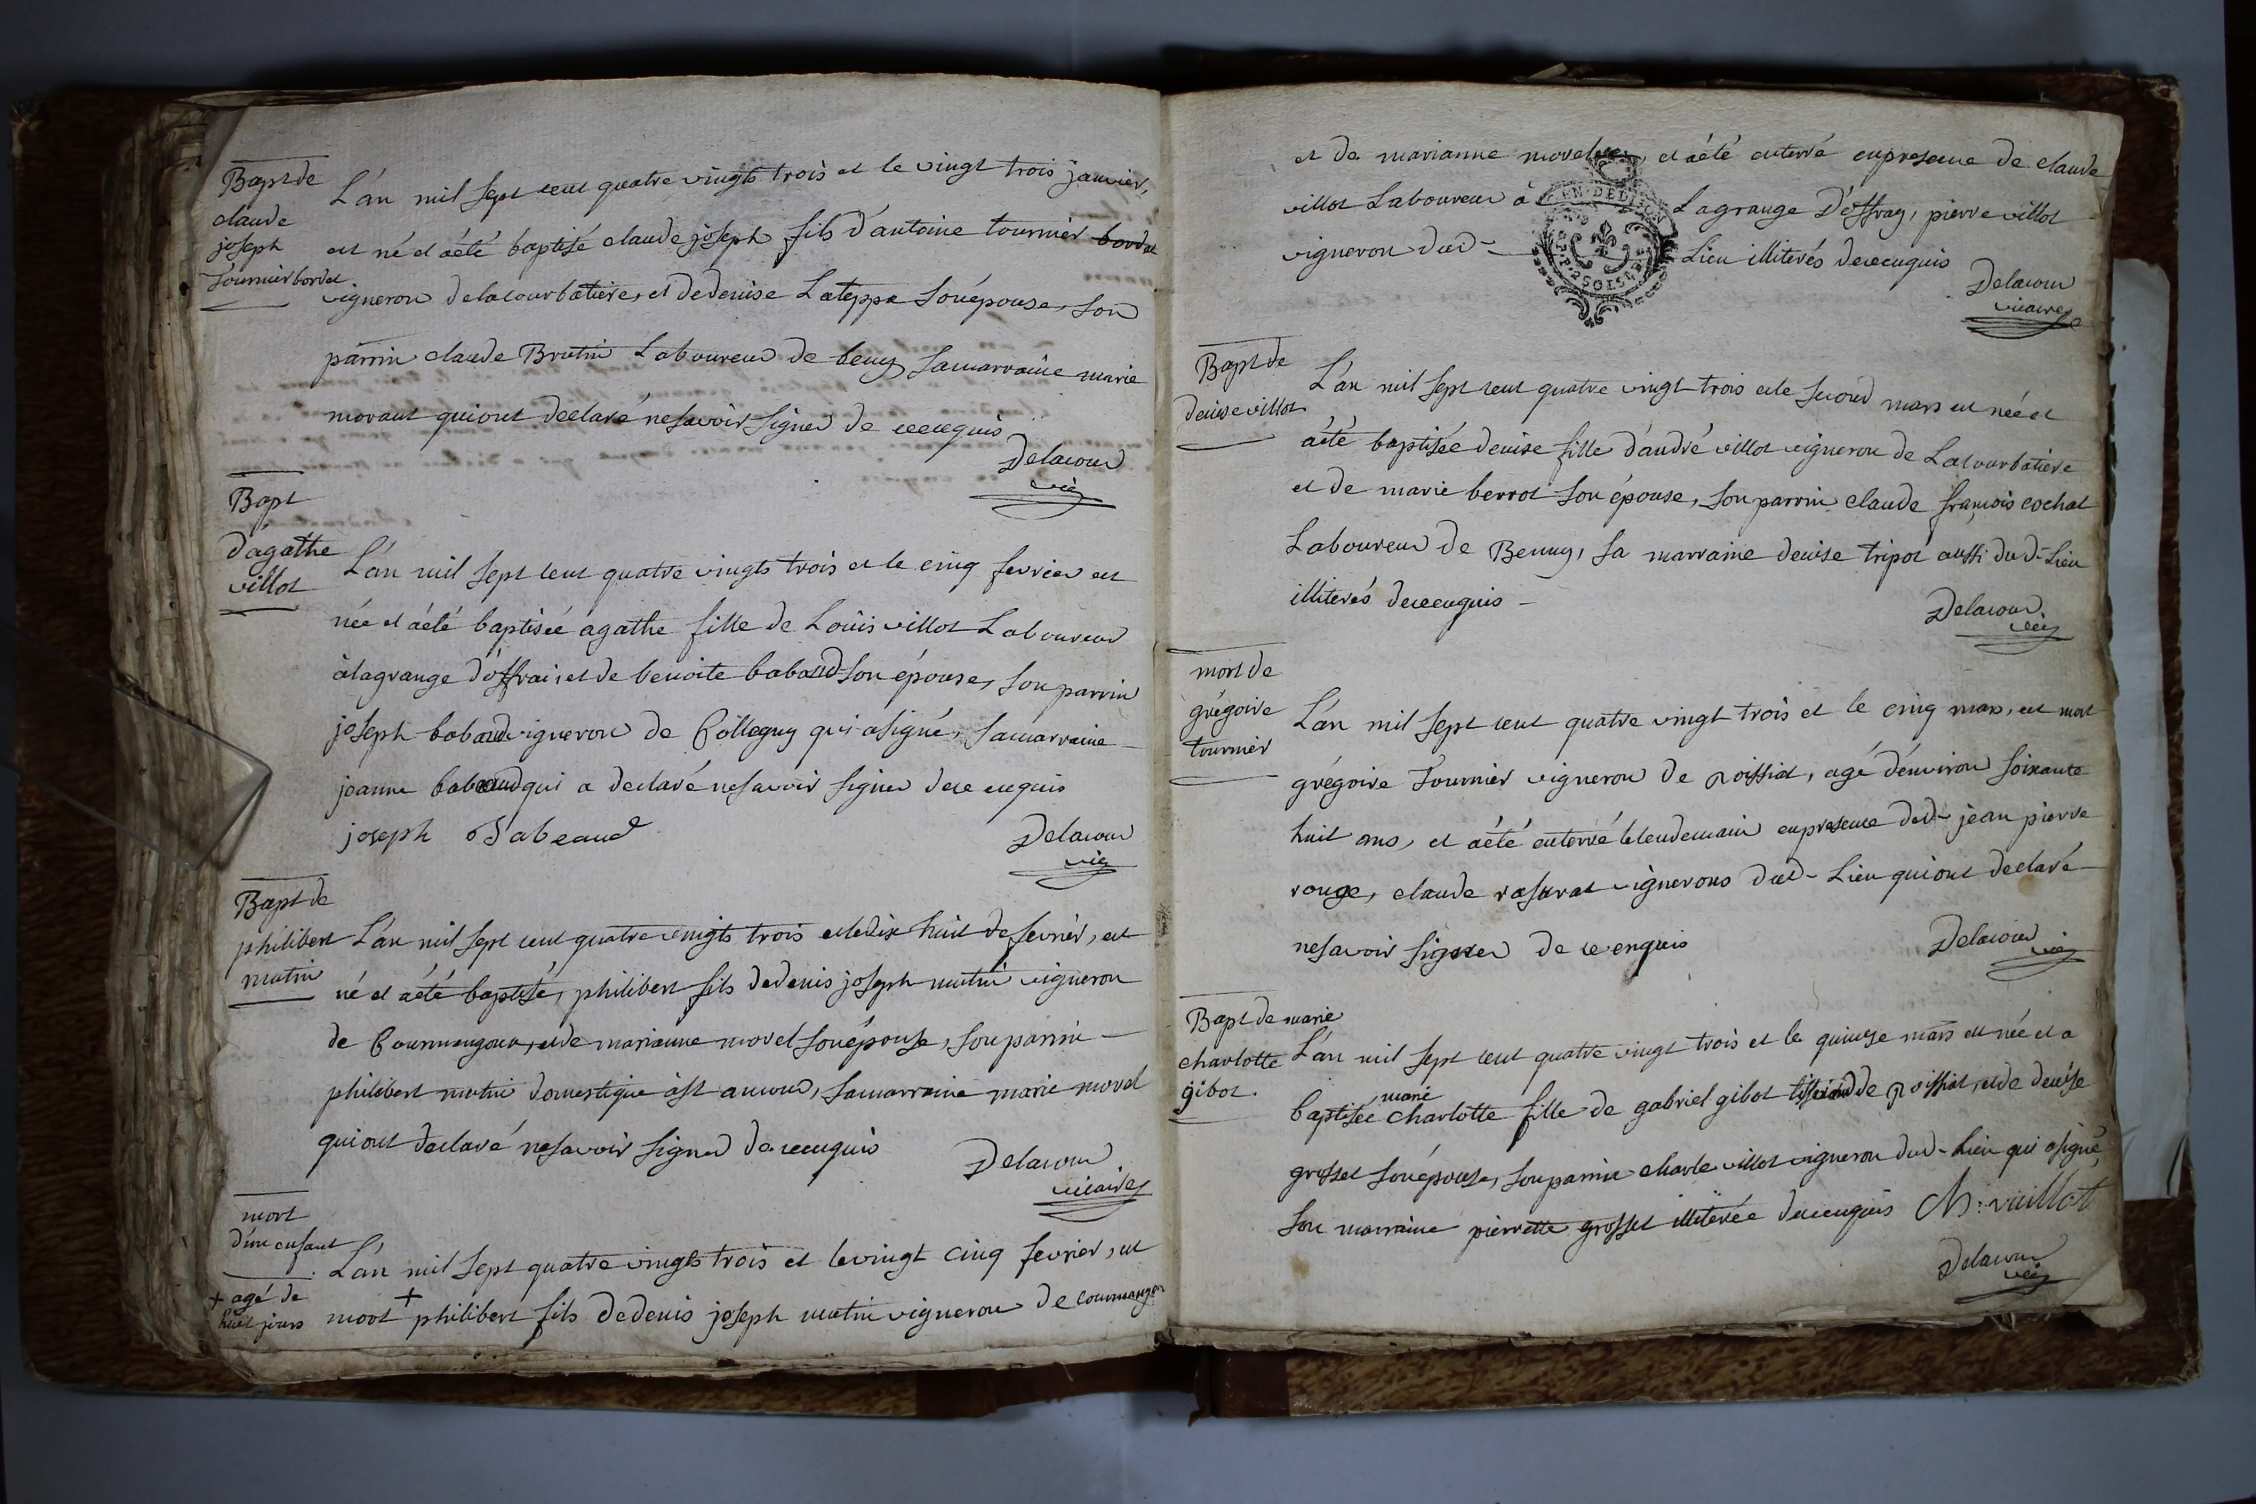 Bapt de
claude
joseph
Tournier bordet
L'an mil sept cent quatre vingts trois et le vingt trois janvier,
est né et aété baptisé claude joseph fils d'antoine tournier bordet
vigneron delacourbatiere, et dedenise Lateppe sonépouse, son
parrin claude Brutin Laboureur de beny samarraine marie
morant quiont declaré nesavoir signer de cecenquis
Delacour
vic
Bapt
d'agathe
villot
L'an mil sept cent quatre vingts trois et le cinq fevrier est
née et aété baptisée agathe fille de Loüis villot Laboureur
àlagrange d'offrai, et de benoite babaud son épouse, son parrin
joseph babaud vigneron de Colleguy qui asigné, samarraine
jeanne babaud qui a declaré nesavoir signer dece enquis
joseph Babeaud
Delacour
vic
Bapt de
philibert
mutin
L'an mil sept cent quatre vingts trois etledix huit de fevrier, est
né et aété baptisé, philibert fils dedenis joseph mutin vigneron
de Courmangoux, et de marianne morel sonépouse, son parrin
philibert mutin domestique àst amour, samarraine marie morel
quiont declaré nesavoir signer de cecenquis
Delacour
vicaire
mort
d'un enfant
+ agé de
huit jours
L'an mil sept quatre vingts trois et levingt cinq fevrier, est
mort + philibert fils dedenis joseph mutin vigneron de courmangou
et de marianne morel, et aété enterré enpresence de claude
villot Laboureur à Lagrange D'offray, pierre villot
vigneron dud- Lieu illiterés dececnquis
Delacour
vicaire
GEN. DE DIJON
2 SOLS
Bapt de
denise villot
L'an mil sept cent quatre vingt trois etle second mars est née et
aété baptisée denise fille d'andré villot vigneron de Lacourbatiere
et de marie berrot son épouse, son parrin claude françois cochat
Laboureur de Benny, sa marraine denise tripot aussi dud- Lieu
illiterés dececenquis -
Delacour
vic
mort de
grégoire
tournier
L'an mil sept cent quatre vingt trois et le cinq mars, est mort
grégoire Tournier vigneron de roissiat, agé d'environ soixante
huit ans, et aété enterré lelendemain enpresence dud- jean pierre
rouge, claude rasurat vignerons dud- Lieu quiont declaré
nesavoir signer de ce enquis
Delacour
vic
Bapt de marie
charlotte
gibot.
L'an mil sept cent quatre vingt trois et le quinze mars est née et a
marie
baptisée charlotte fille de gabriel gibot tisserand de roissiat, et de denise
grosset sonépouse, son parrin charle villot vigneron dud- Lieu qui asigné,
son marraine pierrette grosset illiterée dececenquis Ch: vuillot
Delacour
vic